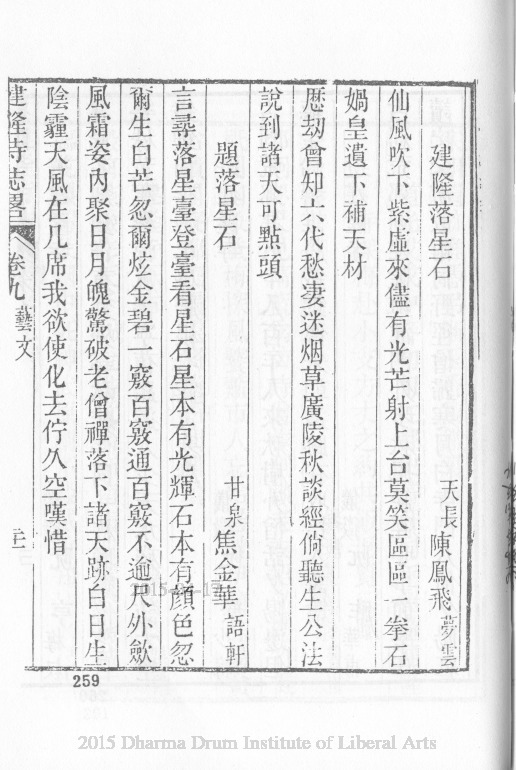 建隆落星石
天長陳鳳飛夢雲
仙風吹下紫虛來儘有光芒射上台莫笑區區一拳石
媧皇遺下補天材
歷刼曾知六代愁凄迷烟草廣陵秋談經倘聽生公法
說到諸天可點頭
題落星石
甘泉焦金華語軒
言尋落星臺登臺看星石星本有光輝石本有顏色忽
爾生白芒忽爾炫金碧一竅百竅通百竅不逾尺外歛
風霜姿內聚日月魄驚破老僧禪落下諸天跡白日生
陰霾天風在几席我欲使化去佇久空嘆惜
建隆寺志畧
卷九藝文
259
2015 Dharma Drum Institute of Liberal Arts